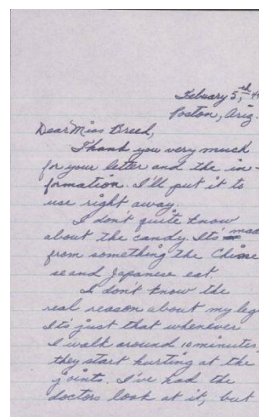 Febuary 5,
Poston, Ariz.
Dear Miss Breed,
Thank you very much
for your letter and the in-
formation. I'll put it to
use right away.
I don't quite know
about the candy. It's made
from something the Chine
se and Japanese eat.
I don't know the
real reason about my leg
It's just that whenever
I walk around 10 minutes,
they start hurting at the
joints. I've had the
doctors look at it, but